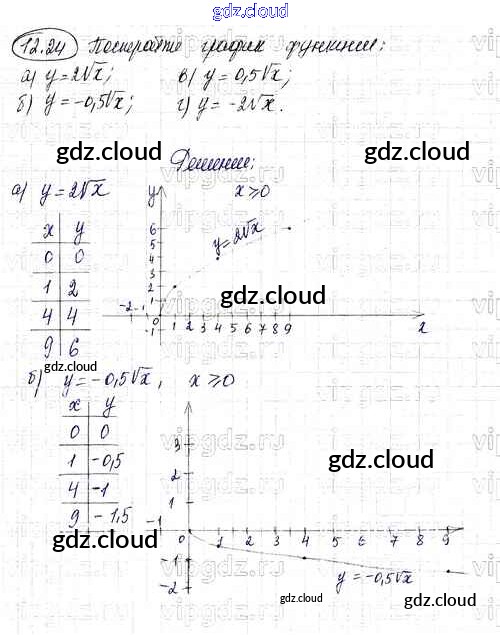 gdz.cloud
12.24 Постройте график функции:
а) y = 2√x; в) y = 0,5√x;
б) y = -0,5√x; г) y = -2√x.
gdz.cloud gdz.cloud
Решение:
а) y = 2√x y x ⩾ 0
x y
0 0
1 2
4 4
9 6
y = 2√x
6
5
4
3
2
1
-2 -1 0 1 2 3 4 5 6 7 8 9 x
-1
gdz.cloud
gdz.cloud
б) y = -0,5√x, x ⩾ 0
x y
0 0
1 -0,5
4 -1
9 -1,5
3
2
1
-1 0 1 2 3 4 5 6 7 8 9
-1
-2
y = -0,5√x
gdz.cloud
gdz.cloud
gdz.cloud
gdz.cloud